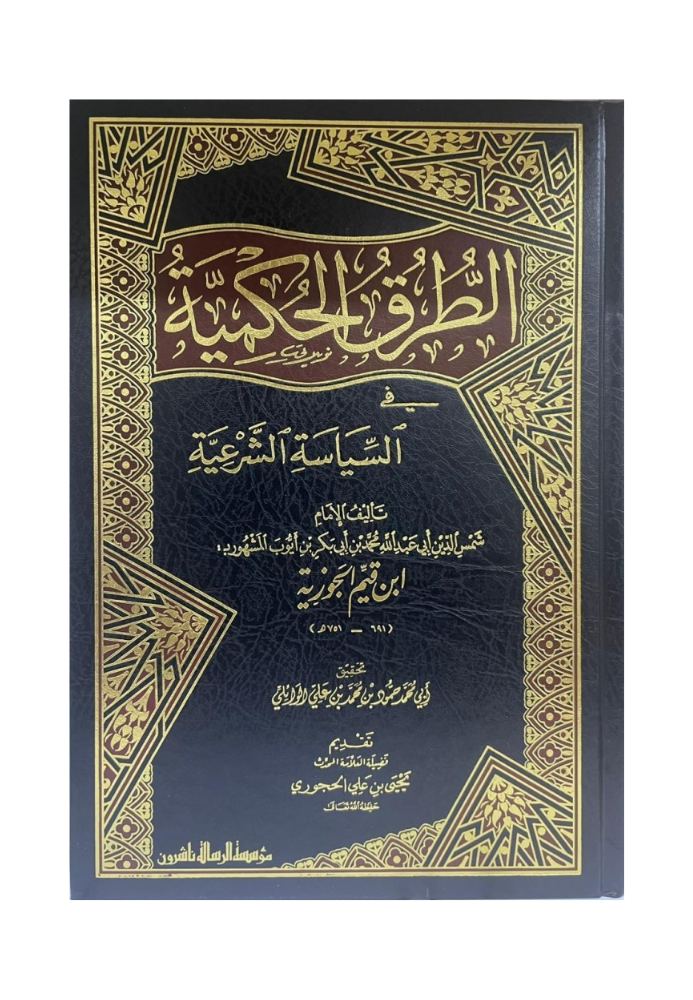 الطُّرُقُ الحُكْمِيَّةُ
في
السِّيَاسَةِ الشَّرْعِيَّةِ
تَأليفُ الإمَامِ
شَمْسِ الدِّينِ أَبِي عَبْدِ اللهِ مُحَمَّدِ بْنِ أَبِي بَكْرِ بْنِ أَيُّوبَ المَشْهُورِ بِ:
ابن قيّم الجَوْزِيَّة
(٦٩١ - ٧٥١ هـ)
تحقيق
أبي محمد حمود بن محمد بن علي الوايلي
تقديم
فضيلة العلامة المحدث
يحيى بن علي الحجوري
حفظه الله تعالى
مؤسسة الرسالة ناشرون